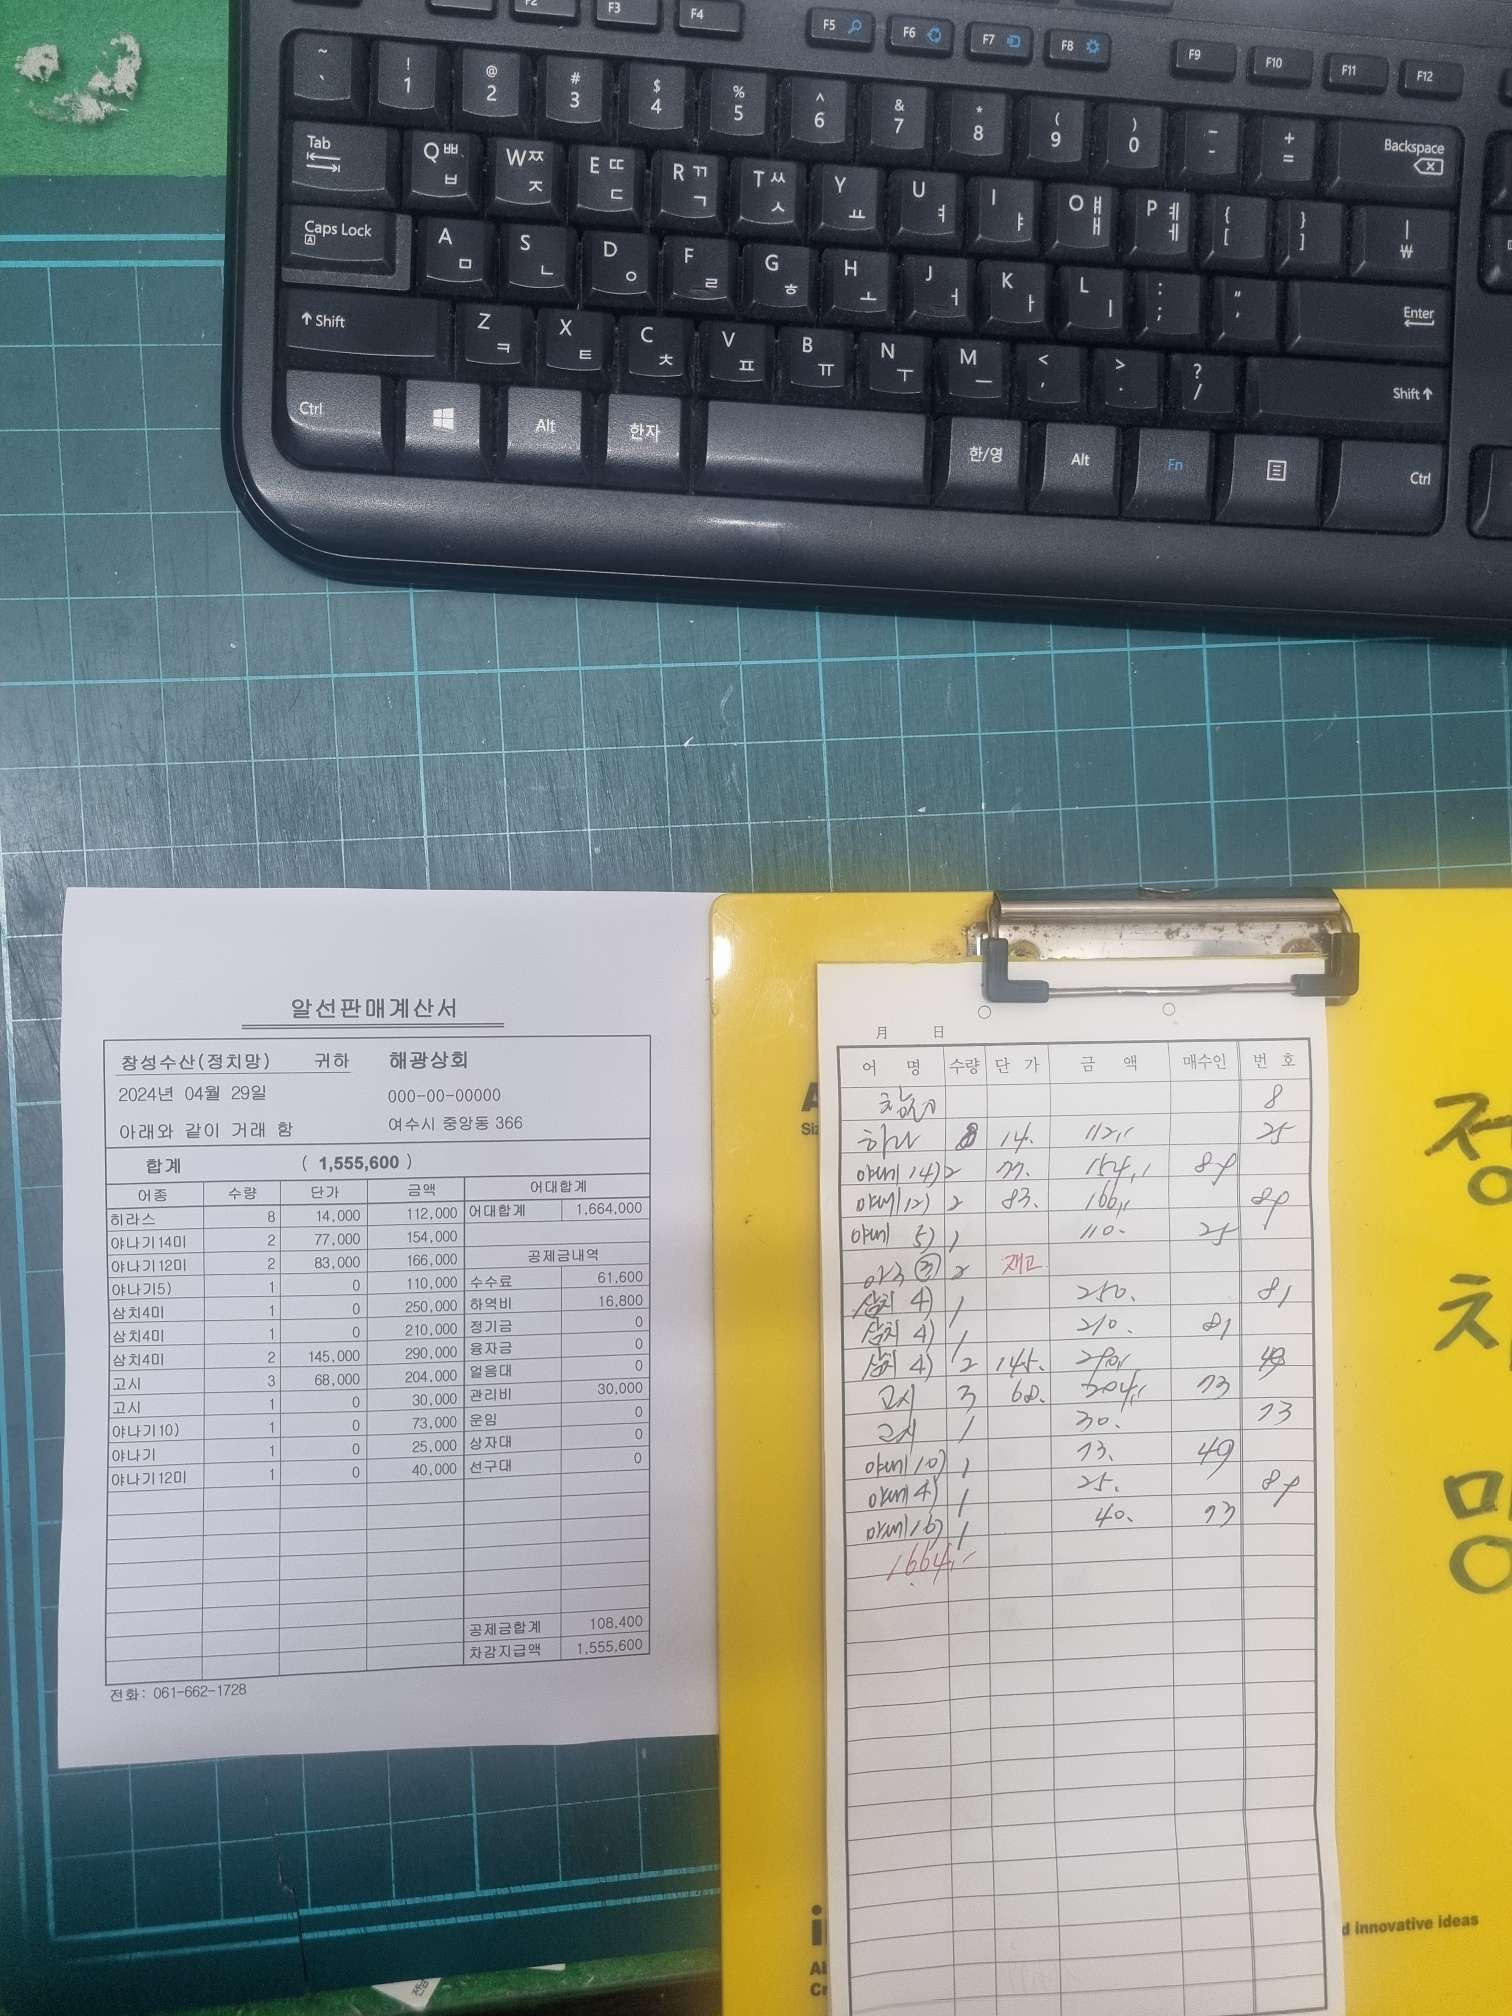 F2 F3 F4 F5 F6 F7 F8 F9 F10 F11 F12
~ ` ! 1 @ 2 # 3 $ 4 % 5 ^ 6 & 7 * 8 ( 9 ) 0 - - + = Backspace
Tab Q ㅃ ㅂ W ㅉ ㅈ E ㄸ ㄷ R ㄲ ㄱ T ㅆ ㅅ Y ㅛ U ㅕ I ㅑ O ㅒ ㅐ P ㅖ ㅔ { [ } ] | ₩
Caps Lock A A ㅁ S ㄴ D ㅇ F ㄹ G ㅎ H ㅗ J ㅓ K ㅏ L ㅣ : ; " ' Enter
↑ Shift Z ㅋ X ㅌ C ㅊ V ㅍ B ㅠ N ㅜ M ㅡ < , > . ? / Shift ↑
Ctrl Alt 한자 한/영 Alt Fn Ctrl
알선판매계산서
창성수산(정치망) 귀하 해광상회
2024년 04월 29일 000-00-00000
아래와 같이 거래 함 여수시 중앙동 366
합계 ( 1,555,600 )
어종 수량 단가 금액 어대합계
히라스 8 14,000 112,000 어대합계 1,664,000
야나기14미 2 77,000 154,000
야나기12미 2 83,000 166,000 공제금내역
야나기5) 1 0 110,000 수수료 61,600
삼치4미 1 0 250,000 하역비 16,800
삼치4미 1 0 210,000 정기금 0
삼치4미 2 145,000 290,000 융자금 0
고시 3 68,000 204,000 얼음대 0
고시 1 0 30,000 관리비 30,000
야나기10) 1 0 73,000 운임 0
야나기 1 0 25,000 상자대 0
야나기12미 1 0 40,000 선구대 0
공제금합계 108,400
차감지급액 1,555,600
전화: 061-662-1728
月 日
어 명 수량 단 가 금 액 매수인 번 호
8
8 14. 112,, 25
14) 2 77. 154,,
12) 2 83. 166,,
5) 1 110. 25
③ 2 재고
삼치 4) 1 250. 81
삼치 4) 1 210. 81
삼치 4) 2 145. 290,, 49
고시 3 68. 204,, 73
고시 1 30. 73
10) 1 73. 49
4) 1 25.
16) 1 40. 73
1664,,
정
치
망
d innovative ideas